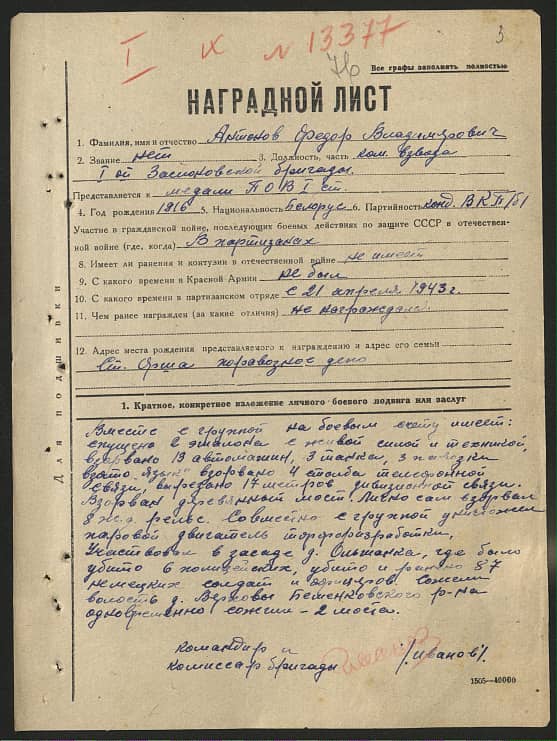 I X N 13377
3
76
Все графы заполнять полностью
НАГРАДНОЙ ЛИСТ
1. Фамилия, имя и отчество Антонов Федор Владимирович
2. Звание нет 3. Должность, часть ком. взвода
I ой Заслоновской бригады
Представляется к медали П О В I ст.
4. Год рождения 1916 5. Национальность Белорус 6. Партийность канд. ВКП/б/
Участие в гражданской войне, последующих боевых действиях по защите СССР в отечествен-
ной войне (где, когда) В партизанах
8. Имеет ли ранения и контузии в отечественной войне не имеет
9. С какого времени в Красной Армии не был
10. С какого времени в партизанском отряде с 21 апреля 1943 г.
11. Чем ранее награжден (за какие отличия) не награждался
12. Адрес места рождения представляемого к награждению и адрес его семьи
Ст. Орша паровозное депо
Для подшивки
1. Краткое, конкретное изложение личного боевого подвига или заслуг
Вместе с группой на боевым счету имеет:
спущено 2 эшалона с живой силой и техникой,
взорвано 13 автомашин, 3 танка, 3
взято "языка" взорвано 4 столба телефонной
связи, вырезано 17 метров дивизионной связи.
Взорван деревянный мост. Лично сам взорвал
8 ж.д. рельс. Совместно с группой уничтожен
паровой двигатель торфоразработки,
Участвовал в засаде д. Ольшанка, где было
убито 6 полицейских, убито и ранено 87
немецких солдат и офицеров. Сожгли
волость д. Верховье Бешенковского р-на
одновременно сожгли - 2 моста.
Командир и
Комиссар бригады /Иванов/.
1505—40000